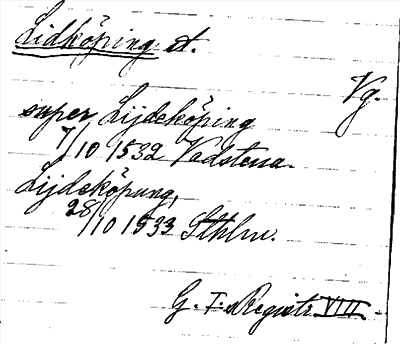 Lidköping st.
Vg.
super Lijdeköping
7/10 1532 Vadstena.
Lijdeköpung,
28/10 1533 Sthlm.
G. I. Registr. VIII.